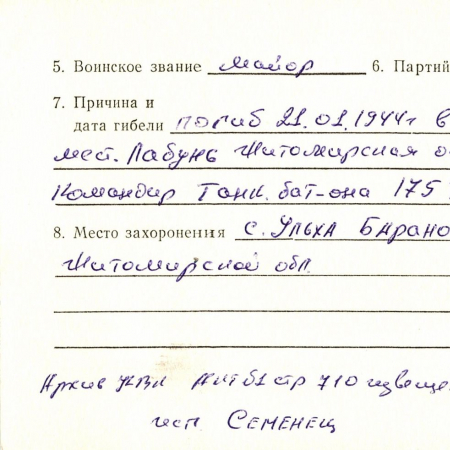 5. Воинское звание майор 6. Партий
7. Причина и
дата гибели погиб 21.01.1944г в
мест. Лабунь Житомирская о
Командир Танк. бат-она 175
8. Место захоронения с. Ульха Барано
Житомирской обл.
Архив УКВЛ стр 710 извеще
исп. Семенец